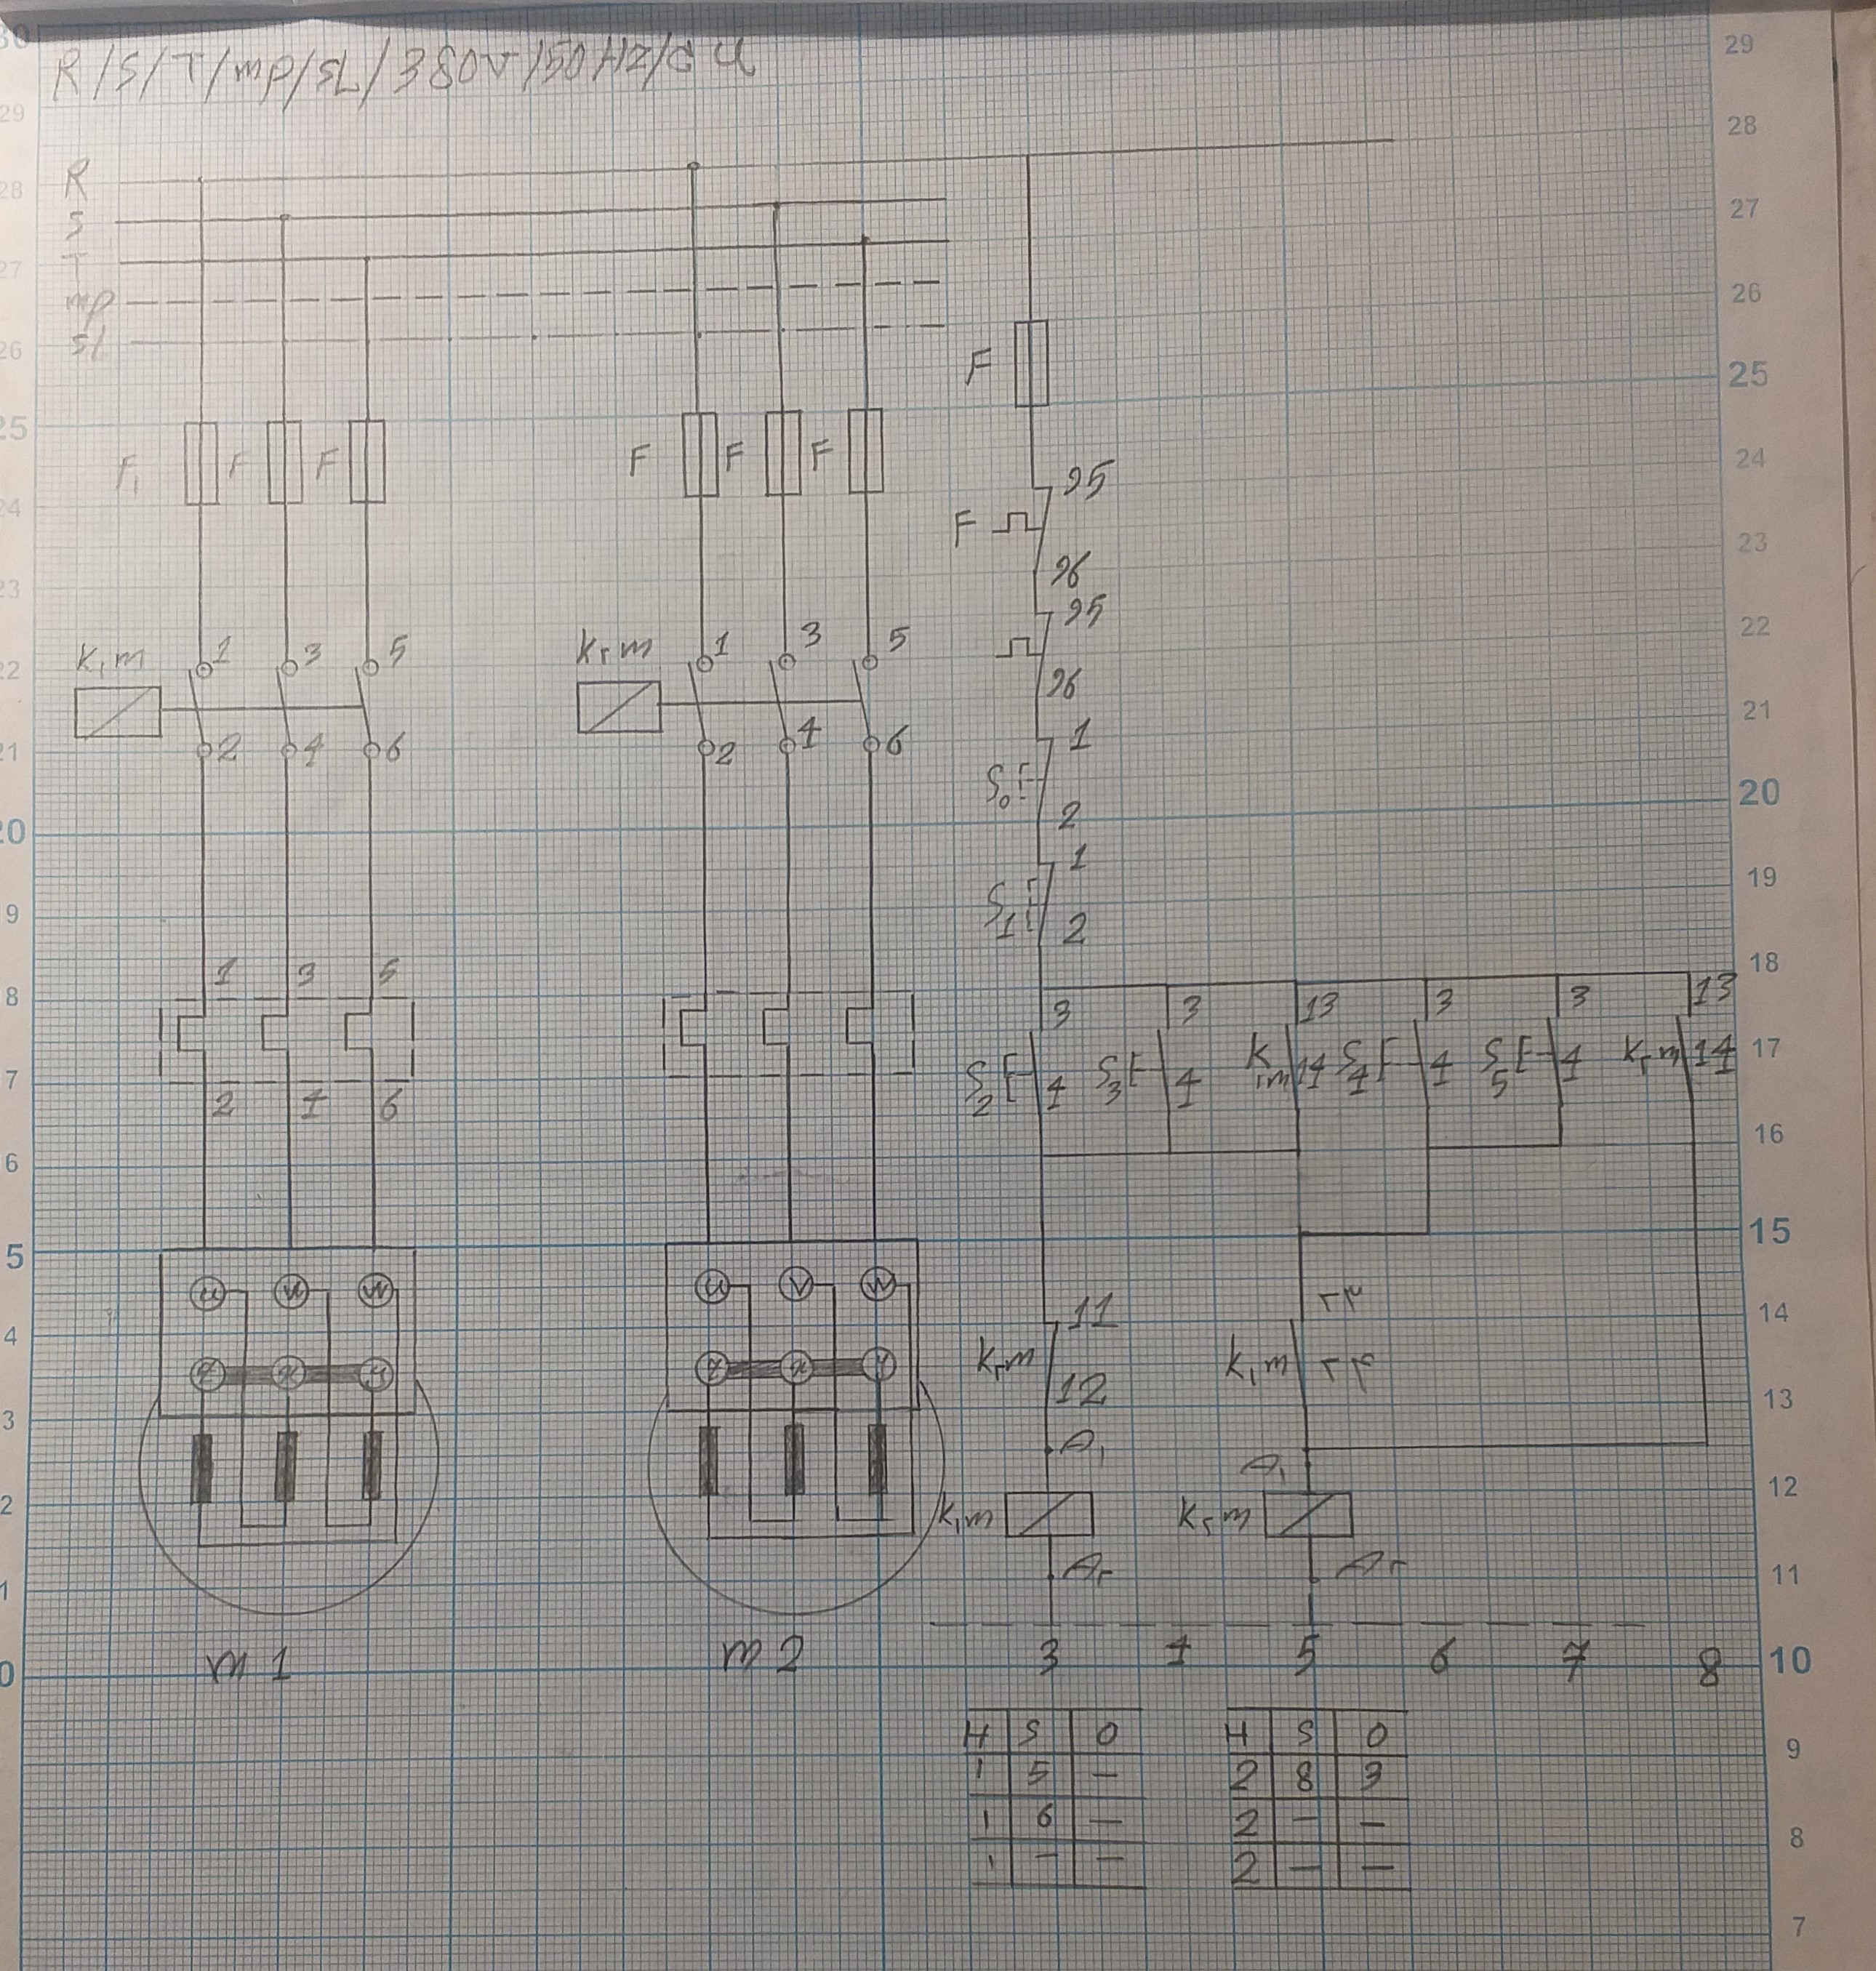 R/S/T/mp/SL/380V/50HZ/
R
S
T
mp
SL
F
F₁ F F F F F
95
F
96
95
96
K₁m 1 3 5 K٢m 1 3 5
2 4 6 2 4 6
1
S₀
2
1
S1
2
1 3 5
2 4 6
3 3 13 3 3 13
S2 4 S3 4 K₁m 14 S4 4 S5 4 K٢m 14
U V W U V W
Z X Y Z X Y
11 ٢٣
K٢m K₁m
12 ٢٤
A₁ A₁
K₁m K٢m
A٢ A٢
m1 m2 3 4 5 6 7 8
H S O H S O
1 5 — 2 8 3
1 6 — 2 — —
1 — — 2 — —
30
29
28
27
26
25
24
23
22
21
20
9
8
7
6
5
4
3
2
1
0
29
28
27
26
25
24
23
22
21
20
19
18
17
16
15
14
13
12
11
10
9
8
7